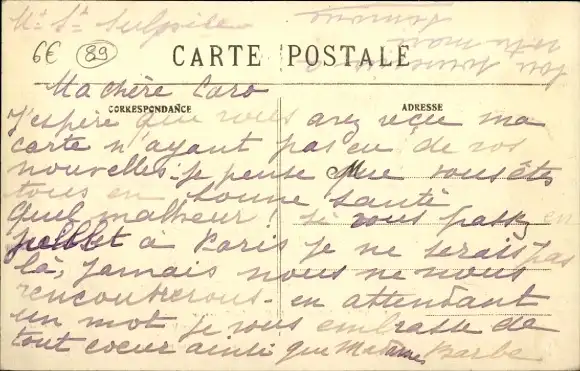 Mt St Sulpice
6€ 89
CARTE POSTALE
Ma chère Caro
CORRESPONDANCE
ADRESSE
J'espère que vous avez reçu ma
carte n'ayant pas eu de vos
nouvelles - je pense que vous êtes
tous en bonne santé
quel malheur! si vous passez en
juillet à Paris je ne serais pas
là, jamais nous ne nous
rencontrerons - en attendant
un mot je vous embrasse de
tout coeur ainsi que Madame Barbe